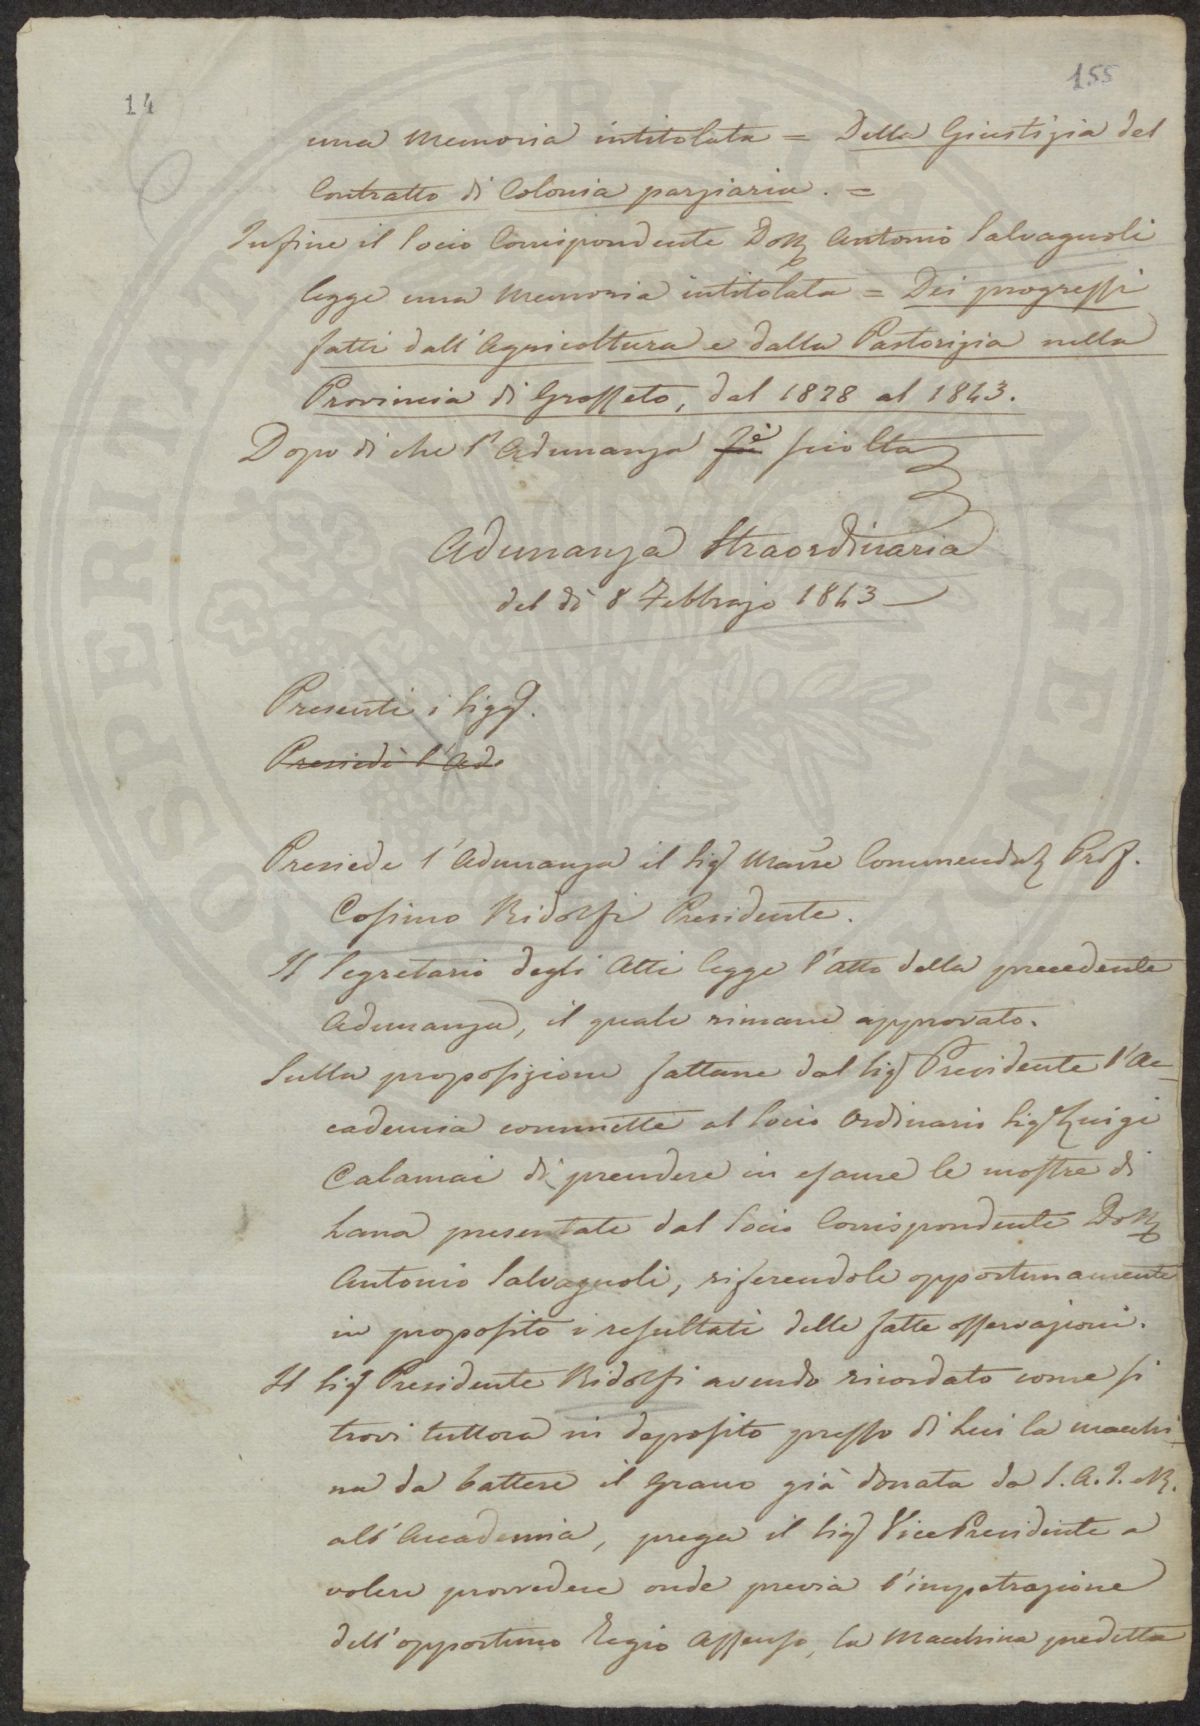 14
155
una Memoria intitolata = Della Giustizia del
Contratto di Colonia parziaria. =
Infine il Socio Corrispondente Dott Antonio Salvagnoli
legge una Memoria intitolata = Dei progressi
fatti dall'Agricoltura e dalla Pastorizia nella
Provincia di Grosseto, dal 1828 al 1843.
Dopo di che l'Adunanza è sciolta
Adunanza Straordinaria
del dì 8 Febbrajo 1843
Presenti i Sigg.
Presiedè l'Ad
Presiede l'Adunanza il Sig Marse Commendat Prof.
Cosimo Ridolfi Presidente.
Il Segretario degli Atti legge l'atto della precedente
Adunanza, il quale rimane approvato.
Sulla proposizione fattane dal Sig Presidente l'Ac-
cademia commette al Socio Ordinario Sig Luigi
Calamai di prendere in esame le mostre di
Lana presentate dal Socio Corrispondente Dott
Antonio Salvagnoli, riferendole opportunamente
in proposito i resultati delle fatte osservazioni.
Il Sig Presidente Ridolfi avendo ricordato come si
trovi tuttora in deposito presso di Lui la macchi-
na da battere il grano già donata da S. A. I. e R.
all'Accademia, prega il Sig Vice Presidente a
volere provvedere onde previa l'impetrazione
dell'opportuno Regio Assenso, la Macchina predetta